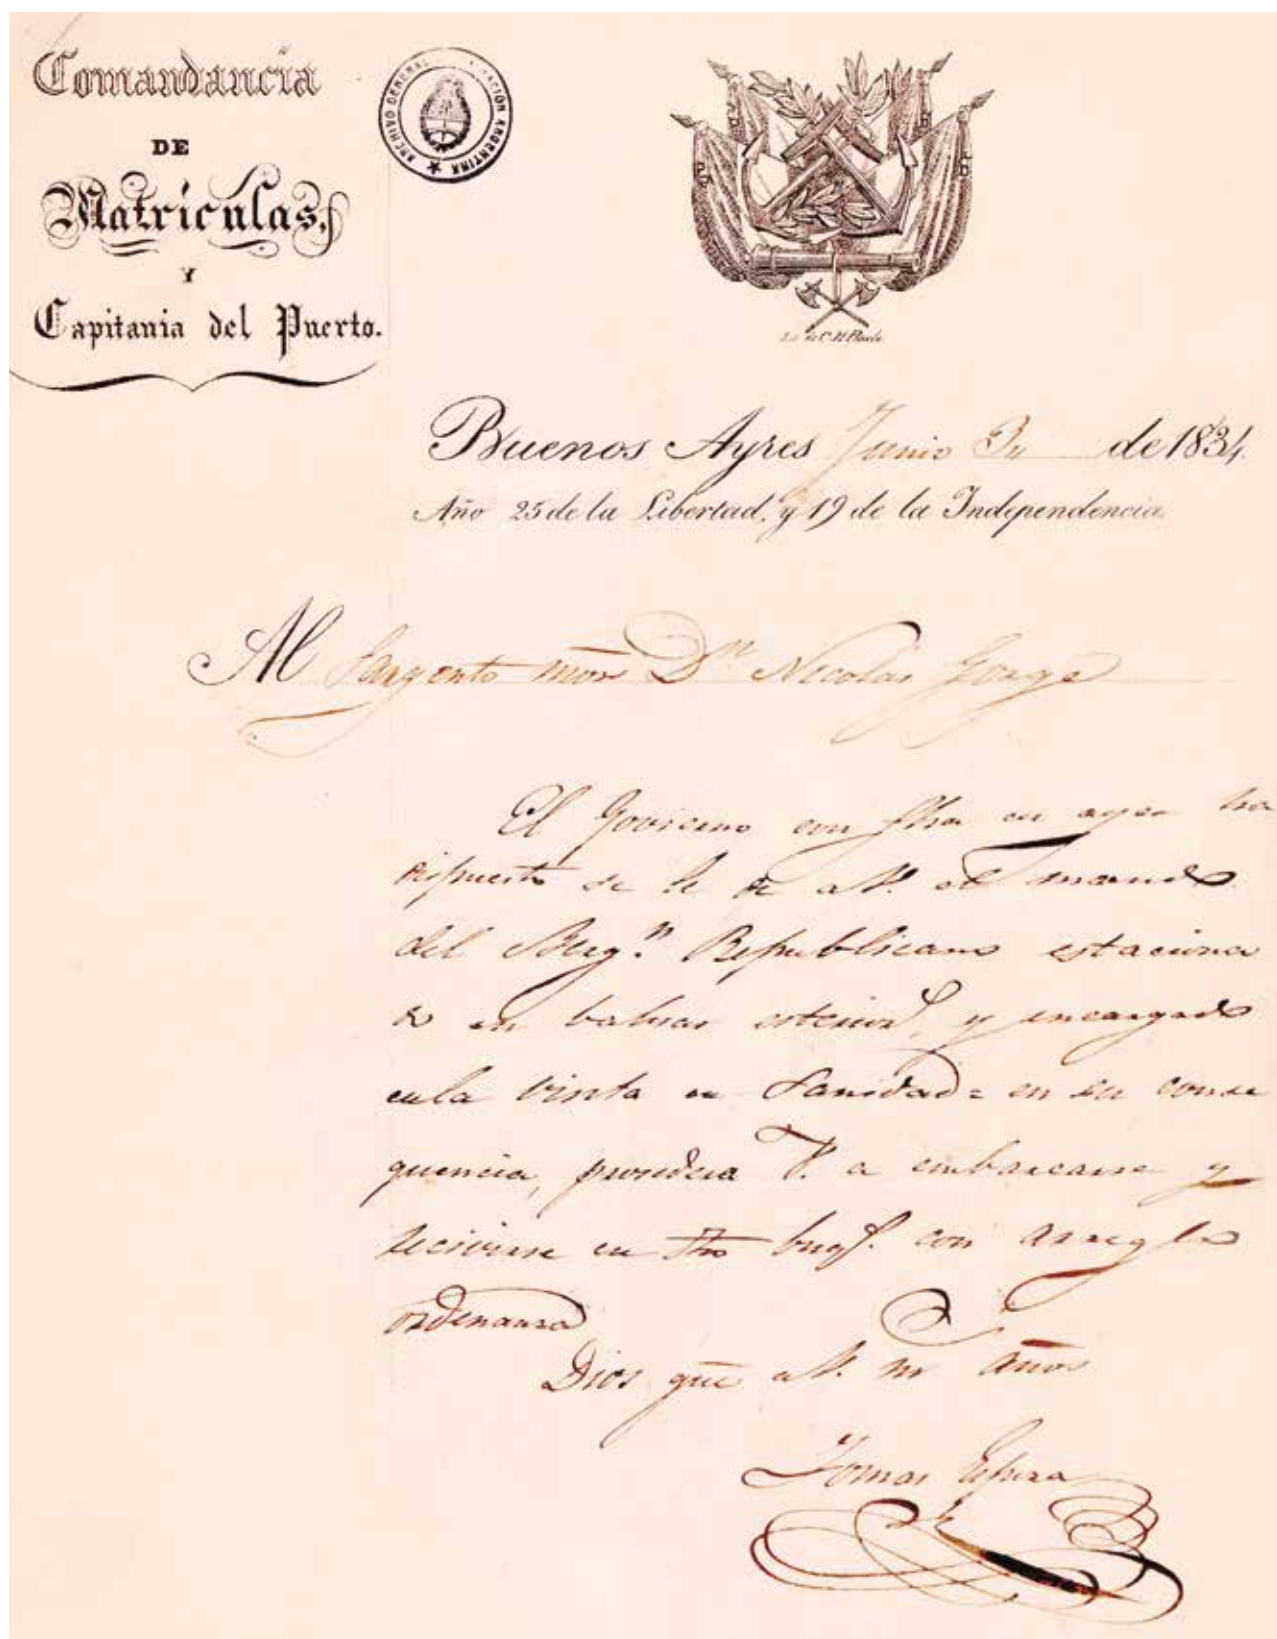 Comandancia
DE
Matrículas,
Y
Capitania del Puerto.
ARCHIVO GENERAL NACION ARGENTINA
Lit. de C.H. Bacle
Buenos Ayres Junio 3 de 1834.
Año 25 de la Libertad, y 19 de la Independencia.
Al Sargento mõr Dn Nicolas Jorge
El Govierno con fha de ayer ha
dispuesto se le de a V. el mando
del Berg.n Republicano estaciona
do en balisas esterior, y encargado
de la visita de Sanidad = en su conse
quencia, procedera V. a embarcarse y
recivirse de dho bergn. con arreglo
ordenanza
Dios gũe a V. ms años
Tomas Espora